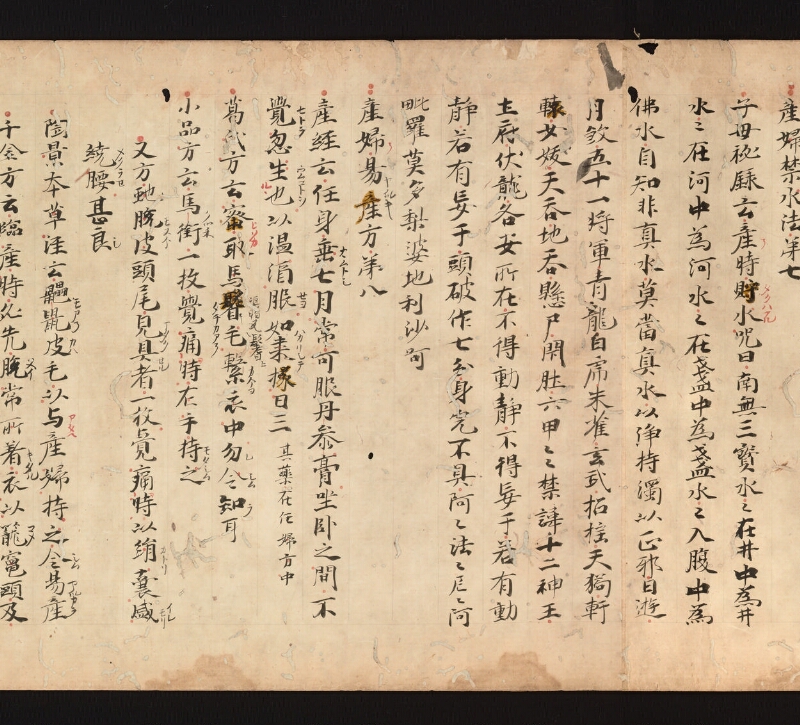 産婦禁水法第七
子母秘録云産時貯水咒曰南無三寶水〻在井中為井
水〻在河中為河水〻在盞中為盞水〻入腹中為
佛水自知非真水莫當真水以淨持濁以正邪日遊
月煞五十一將軍青龍白虎朱雀玄武招搖天狗軒
轅女妓天吞地吞懸尸閇肚六甲〻禁諱十二神王
土府伏龍各安所在不得動靜不得妄干若有動
靜若有妄干頭破作七分身完不具阿〻法〻尼〻阿
毗羅莫多梨婆地利沙呵
産婦易産方第八
産経云任身垂七月常可服丹参膏坐卧之間不
覺忽生也以温酒服如棗核日三 其藥在任婦方中
葛氏方云密取馬髻毛繫衣中勿令知耳
小品方云馬銜一枚覺痛時右手持之
又方虵脱皮頭尾見具者一枚覺痛時以絹囊盛
繞腰甚良
陶景本草注云鼺鼠皮毛以与産婦持之令易産
千金方云臨産時必先脱常所著衣以籠竈頭及